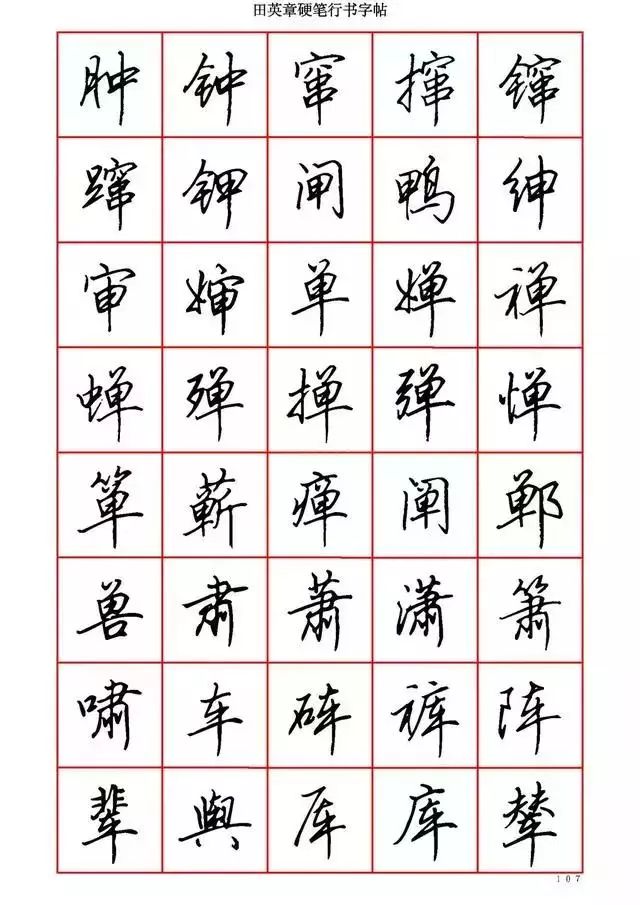 田英章硬笔行书字帖
肿 钟 窜 撺 镩
蹿 钾 闸 鸭 绅
审 婶 单 婵 禅
蝉 殚 掸 弹 惮
箪 蕲 瘅 阐 郸
兽 肃 萧 潇 箫
啸 车 砗 裤 阵
辈 舆 厍 库 辇
107